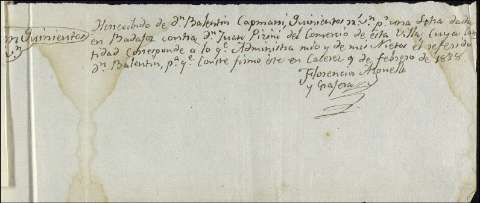 He recibido de Dn. Balentin Capmani, Quinientos rs. vn. pr. una letra dada
Quinientos en Badajoz contra Dn. Juan Pizini del Comercio de esta Villa, cuya can
vn. tidad corresponde a lo qe. Administra mio y de mis Nietas el referido
Dn. Balentin, pa. qe. conste firmo éste en Caleres 9 de febrero de 1838
Florencia Monell
y Grajera